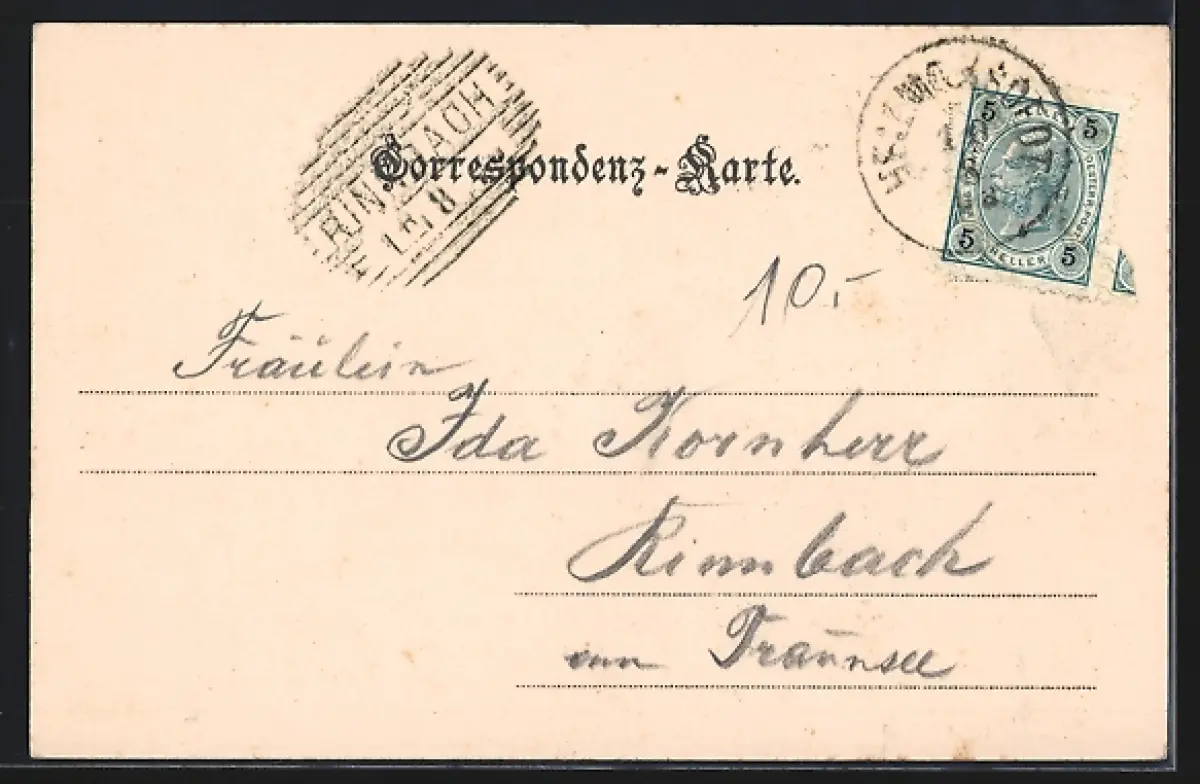 RINNBACH
Correspondenz-Karte.
5 5
5 HELLER 5
10.-
Fräulein
Ida Kornherr
Rinnbach
am Traunsee